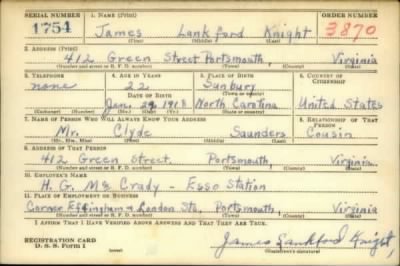 SERIAL NUMBER 1. NAME (Print) ORDER NUMBER
1754 James Lankford Knight 3870
(First) (Middle) (Last)
2. ADDRESS (Print)
412 Green Street Portsmouth, Virginia
(Number and street or R. F. D. number) (Town) (County) (State)
3. TELEPHONE 4. AGE IN YEARS 5. PLACE OF BIRTH 6. COUNTRY OF CITIZENSHIP
none 22 Sunbury
DATE OF BIRTH (Town or county)
Jan. 1918 North Carolina United States
(Exchange) (No.) (Mo.) (Day) (Yr.) (State or country)
7. NAME OF PERSON WHO WILL ALWAYS KNOW YOUR ADDRESS 8. RELATIONSHIP OF THAT PERSON
Mr. Clyde Saunders Cousin
(Mr., Mrs., Miss) (First) (Middle) (Last)
9. ADDRESS OF THAT PERSON
412 Green Street. Portsmouth, Virginia
(Number and street or R. F. D. number) (Town) (County) (State)
10. EMPLOYER'S NAME
H. G. Mc Crady - Esso Station
11. PLACE OF EMPLOYMENT OR BUSINESS
Corner Effingham & London Sts. Portsmouth, Virginia
(Number and street or R. F. D. number) (Town) (County) (State)
I AFFIRM THAT I HAVE VERIFIED ABOVE ANSWERS AND THAT THEY ARE TRUE.
REGISTRATION CARD
D. S. S. Form 1
James Lankford Knight,
(Registrant's signature)